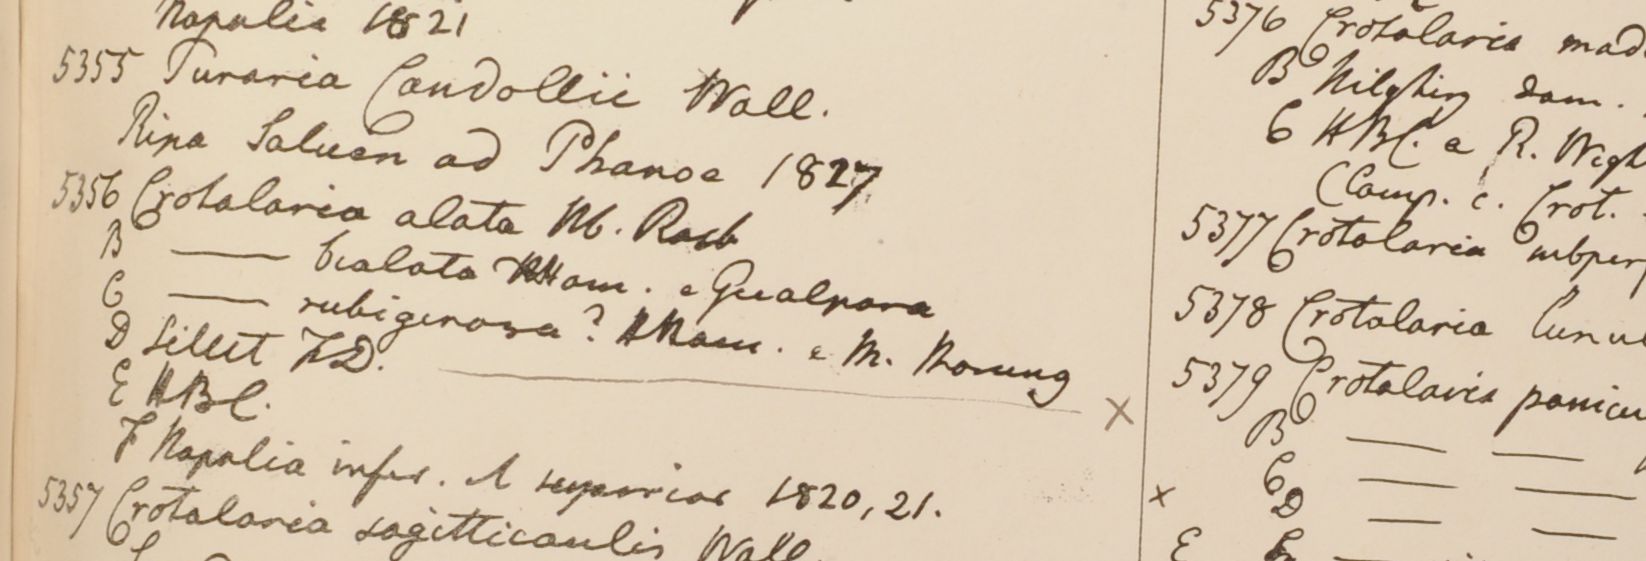 Napalia 1821
5355 Turaria Candollii Wall.
Ripa Saluen ad Phanoe 1827
5356 Crotalaria alata Hb. Roxb
B —— bialata HHam. e Gualpara
C —— rubiginosa? HHam. e M. Morung
D Sillet FD.
E HBC.
F Napalia infer. & superior 1820, 21.
5357 Crotalaria sagitticaulis Wall.
5376 Crotalaria mad
B Nilghiry dom.
C HBC. e R. Wigh
(Comp. c. Crot.
5377 Crotalaria subper
5378 Crotalaria lunu
5379 Crotalaria panicu
B —— ——
C —— ——
D —— ——
E